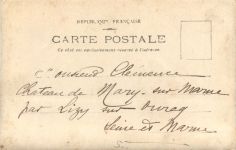 RÉPUBLIQUE FRANÇAISE
CARTE POSTALE
Ce côté est exclusivement réservé à l'adresse
Clémence
Chateau de Mary-sur-Marne
par Lizy sur Ourcq
Seine et Marne